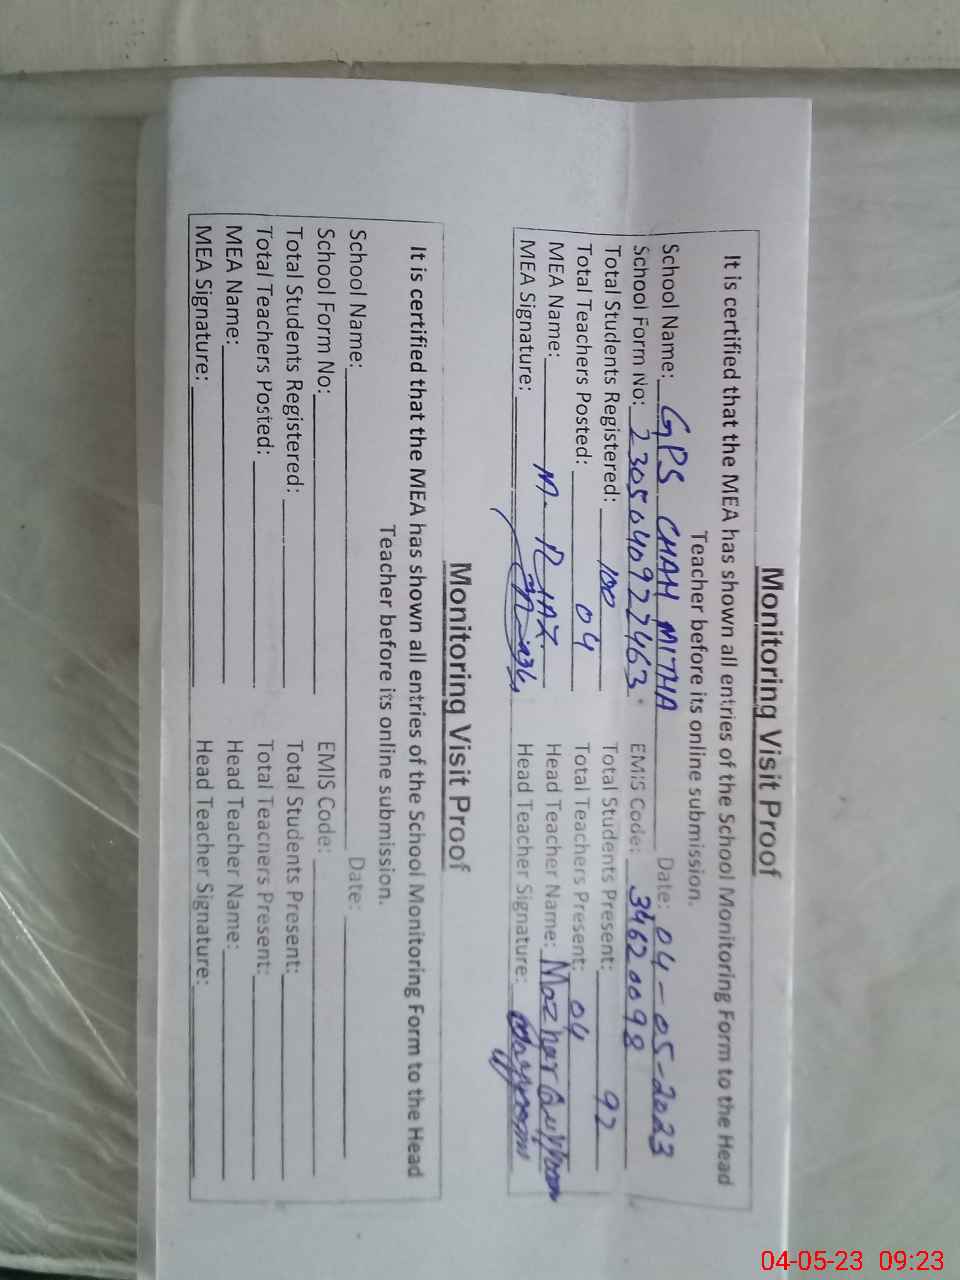 Monitoring Visit Proof
It is certified that the MEA has shown all entries of the School Monitoring Form to the Head
Teacher before its online submission.
School Name: GPS CHAH MITHA Date: 04-05-2023
School Form No: 2305040922463 EMIS Code: 34620098
Total Students Registered: 100 Total Students Present: 92
Total Teachers Posted: 04 Total Teachers Present: 04
MEA Name: M. RIAZ Head Teacher Name: Mazhar
MEA Signature: Head Teacher Signature:
Monitoring Visit Proof
It is certified that the MEA has shown all entries of the School Monitoring Form to the Head
Teacher before its online submission.
School Name: Date:
School Form No: EMIS Code:
Total Students Registered: Total Students Present:
Total Teachers Posted: Total Teachers Present:
MEA Name: Head Teacher Name:
MEA Signature: Head Teacher Signature:
04-05-23 09:23